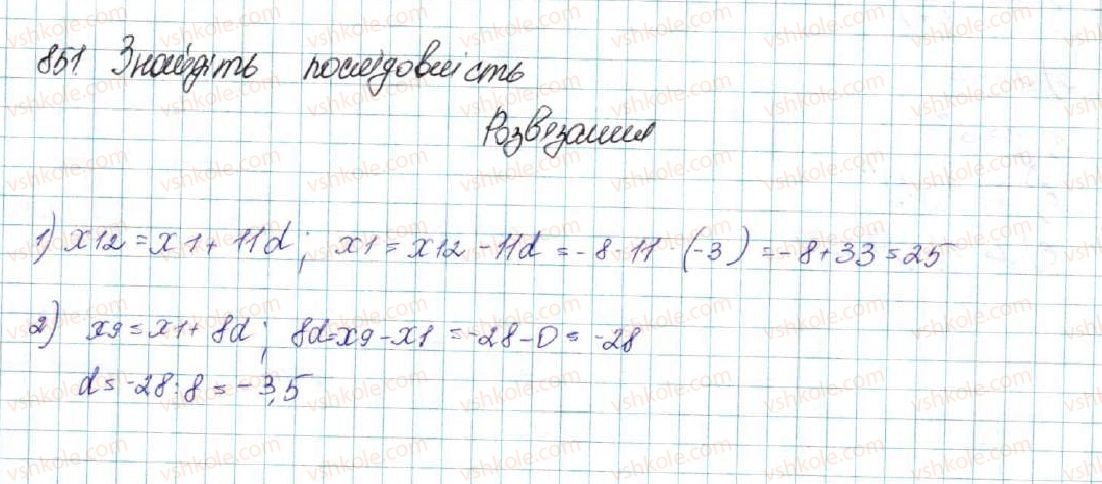 851. Знайдіть послідовність
Розвязання
1) x12 = x1 + 11d; x1 = x12 - 11d = -8 - 11 · (-3) = -8 + 33 = 25
2) x9 = x1 + 8d; 8d = x9 - x1 = -28 - 0 = -28
d = -28 : 8 = -3,5